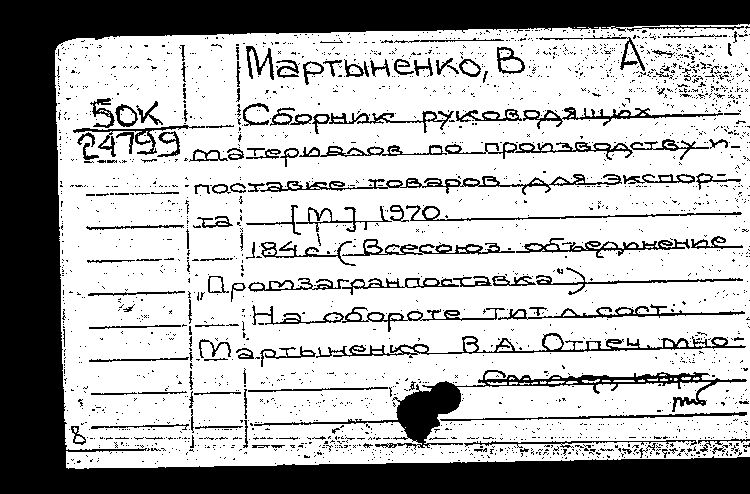 Мартыненко, В А
50К
24799
Сборник руководящих
материалов по производству и
поставке товаров для экспор-
та. [М.], 1970.
184 с. (Всесоюз. объединение
„Промзагранпоставка")
На обороте тит. л. сост.:
Мартыненко В.А. Отпеч. мно-
См. след. карт.
8